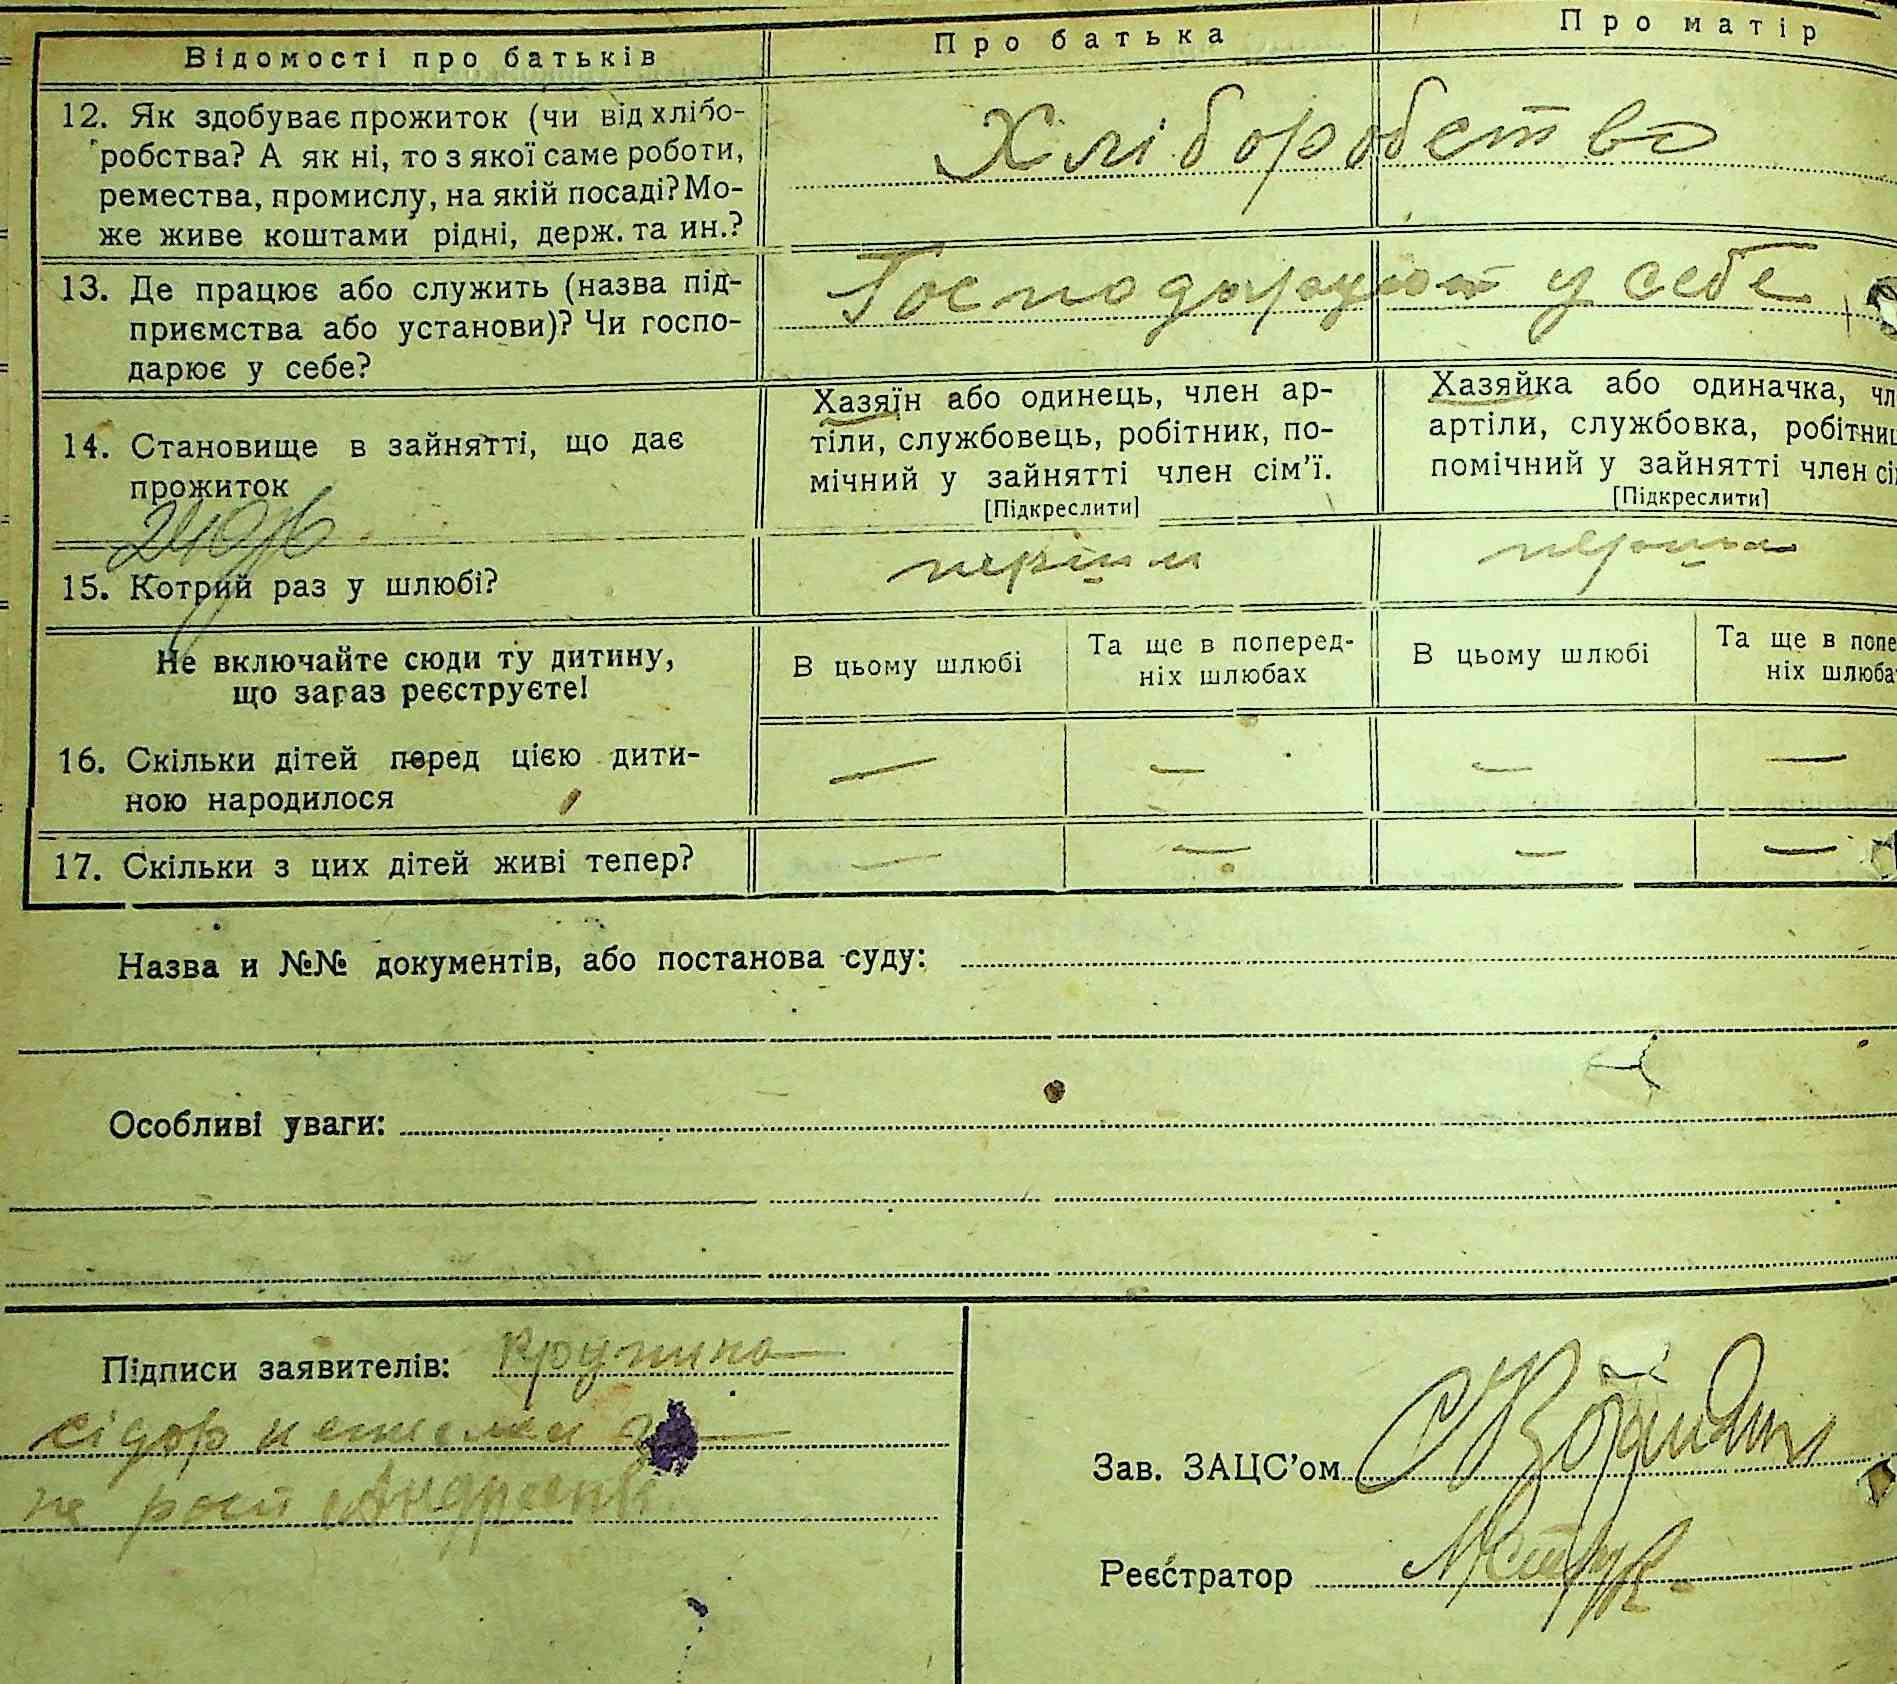 Відомості про батьків
Про батька
Про матір
12. Як здобуває прожиток (чи від хлібо-
робства? А як ні, то з якої саме роботи,
ремества, промислу, на якій посаді? Мо-
же живе коштами рідні, держ. та ин.?
Хліборобство
13. Де працює або служить (назва під-
приємства або установи)? Чи госпо-
дарює у себе?
Господарюют у себе
14. Становище в зайнятті, що дає
прожиток
Хазяїн або одинець, член ар-
тіли, службовець, робітник, по-
мічний у зайнятті член сім’ї.
[Підкреслити]
Хазяйка або одиначка, чл
артіли, службовка, робітниц
помічний у зайнятті член сі
[Підкреслити]
15. Котрий раз у шлюбі?
перший
перший
Не включайте сюди ту дитину,
що зараз реєструєте!
В цьому шлюбі
Та ще в поперед-
ніх шлюбах
В цьому шлюбі
Та ще в попе
ніх шлюба
16. Скільки дітей перед цією дити-
ною народилося
— — — —
17. Скільки з цих дітей живі тепер?
— — — —
Назва и №№ документів, або постанова суду:
Особливі уваги:
Підписи заявителів:
сідор
Зав. ЗАЦС’ом
Реєстратор